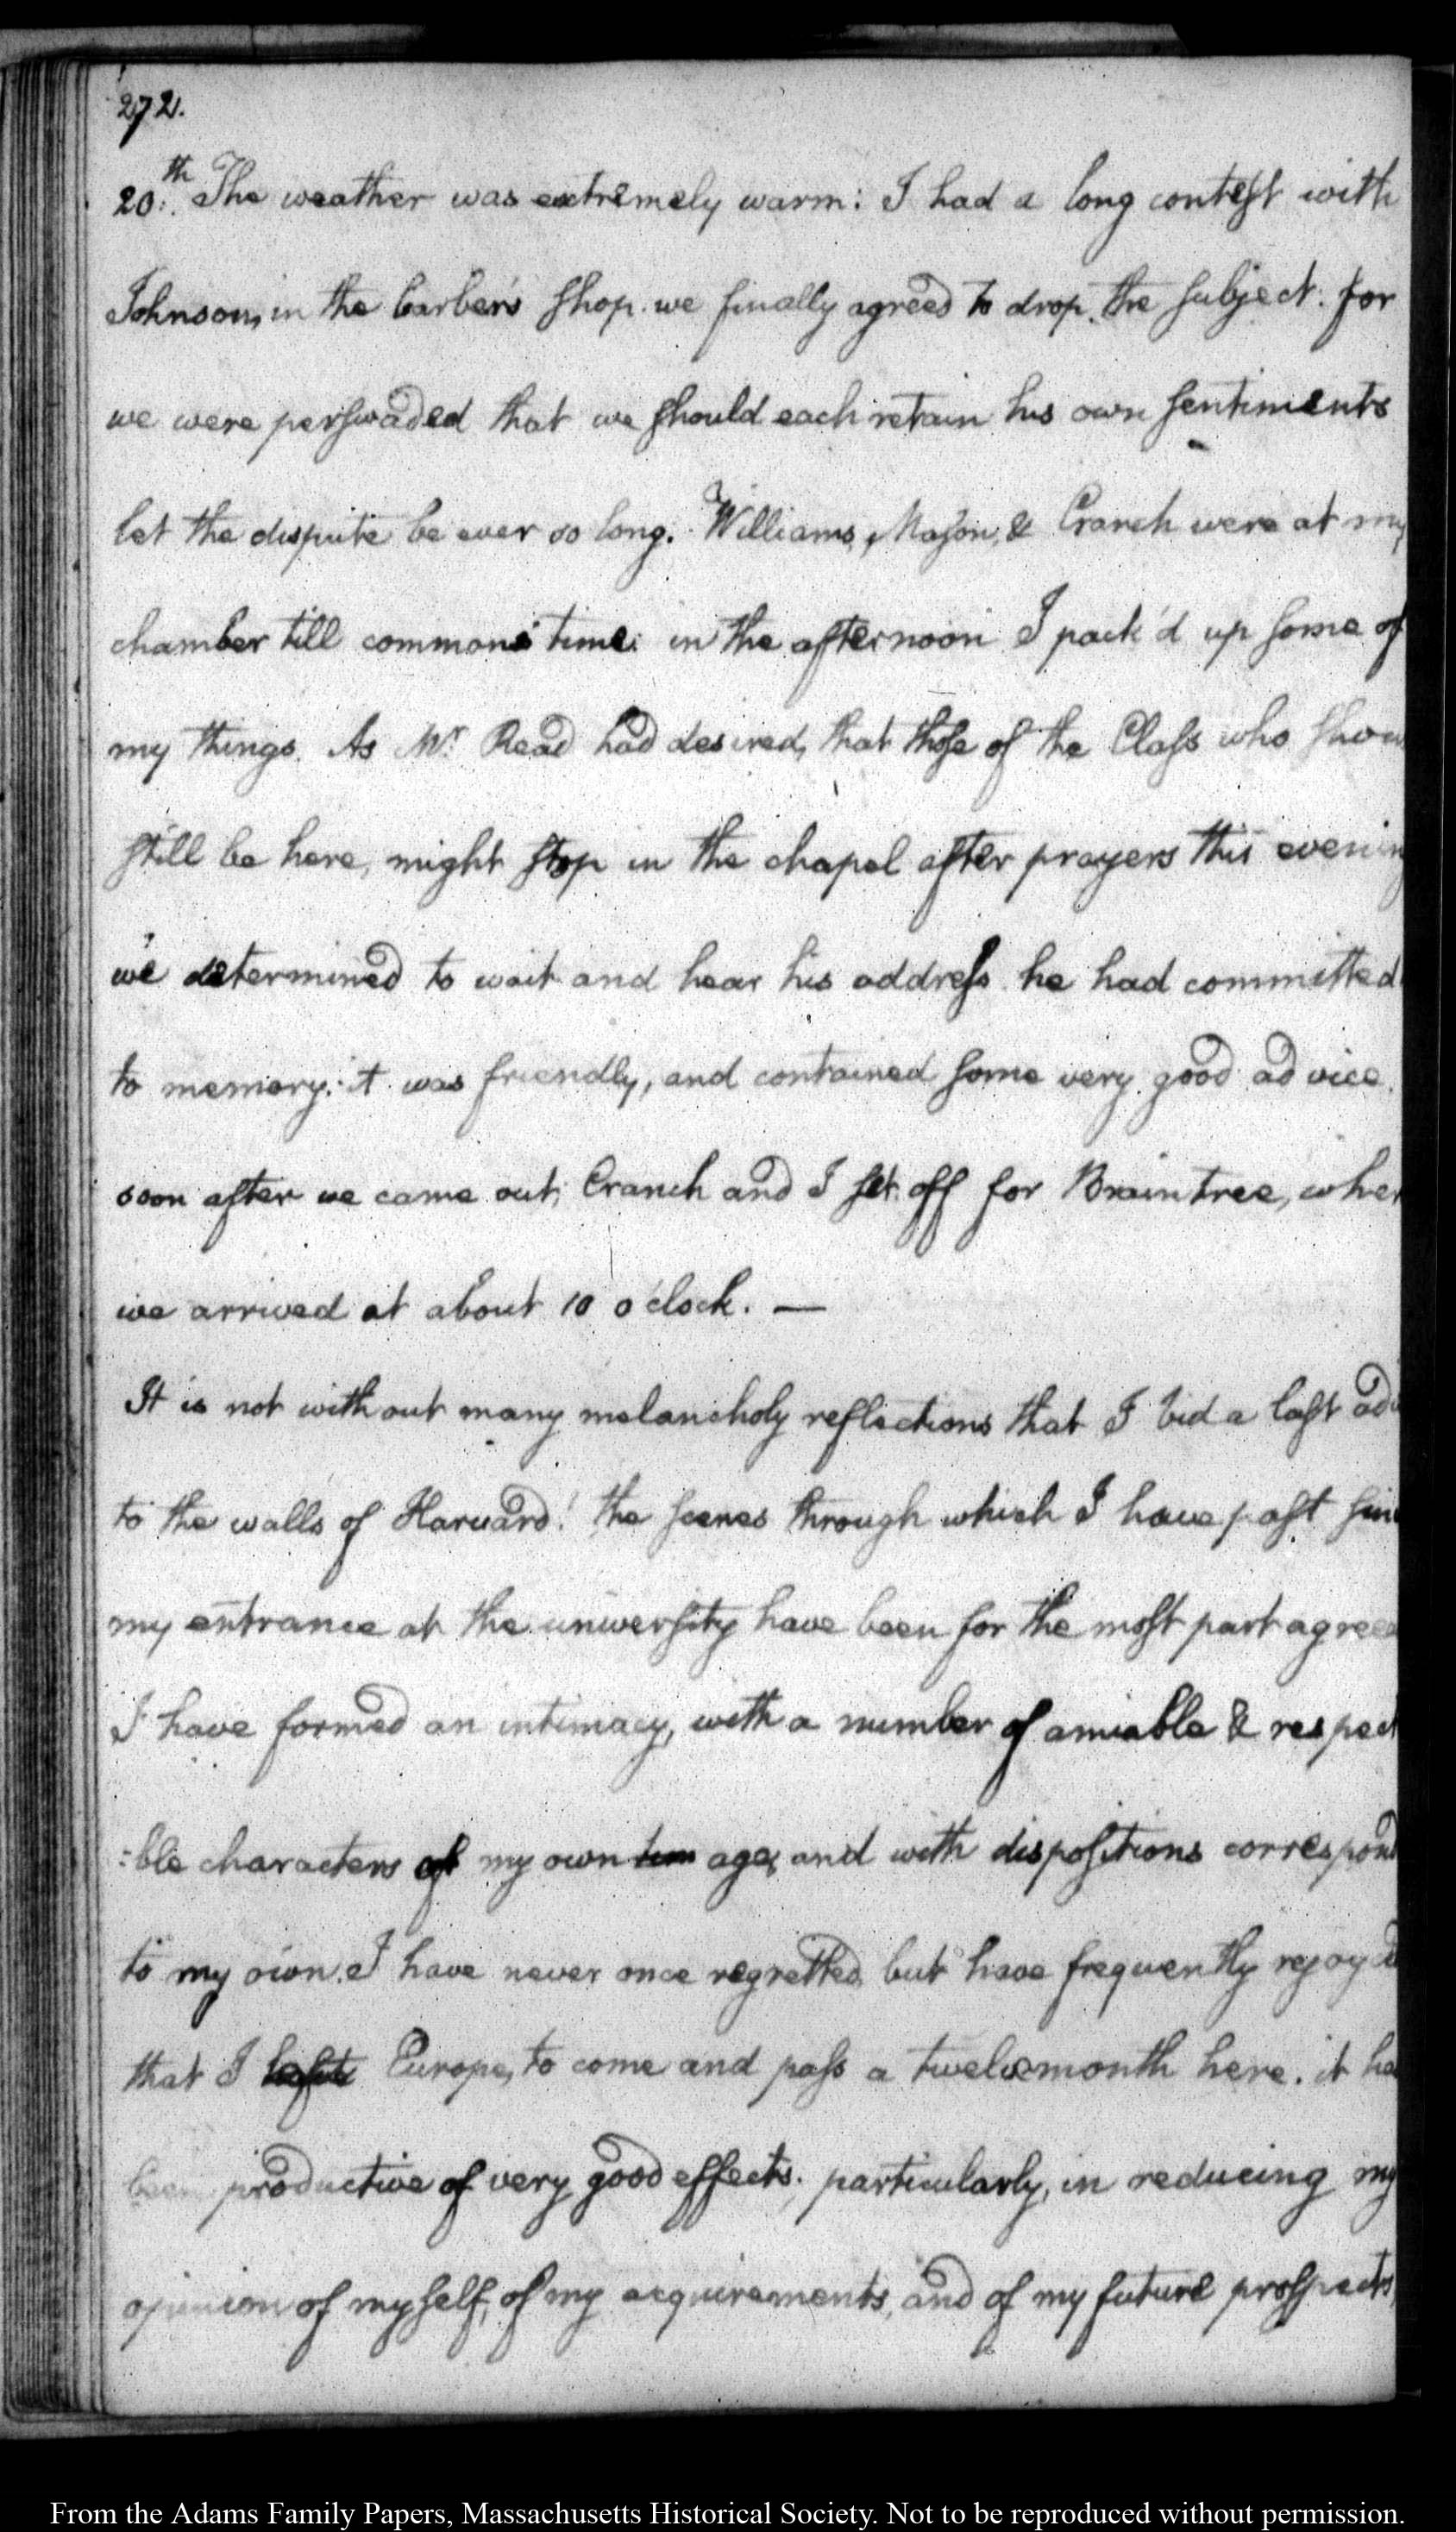 272.
20:th The weather was extremely warm: I had a long contest with
Johnson, in the barber's shop. we finally agreed to drop, the subject: for
we were perswaded that we should each retain his own sentiments
let the dispute be ever so long. Williams, Mason, & Cranch were at my
chamber till commons time: in the afternoon I pack'd up some of
my things. As Mr Read had desired, that those of the Class who shou
still be here, might stop in the chapel after prayers this evening
we determined to wait and hear his address he had committed
to memory: it was friendly, and contained some very good advice.
soon after we came out, Cranch and I set off for Braintree, wher
we arrived at about 10 o'clock. —
It is not without many melancholy reflections that I bid a last adi
to the walls of Harvard! the scenes through which I have past sinc
my entrance at the university have been for the most part agreea
I have formed an intimacy, with a number of amiable & respect
:ble characters of my own age, and with dispositions correspond
to my own. I have never once regretted, but have frequently rejoyc'd
that I left Europe, to come and pass a twelvemonth here. it ha
been productive of very good effects; particularly, in reducing my
opinion of myself, of my acquirements, and of my future prospects,
From the Adams Family Papers, Massachusetts Historical Society. Not to be reproduced without permission.